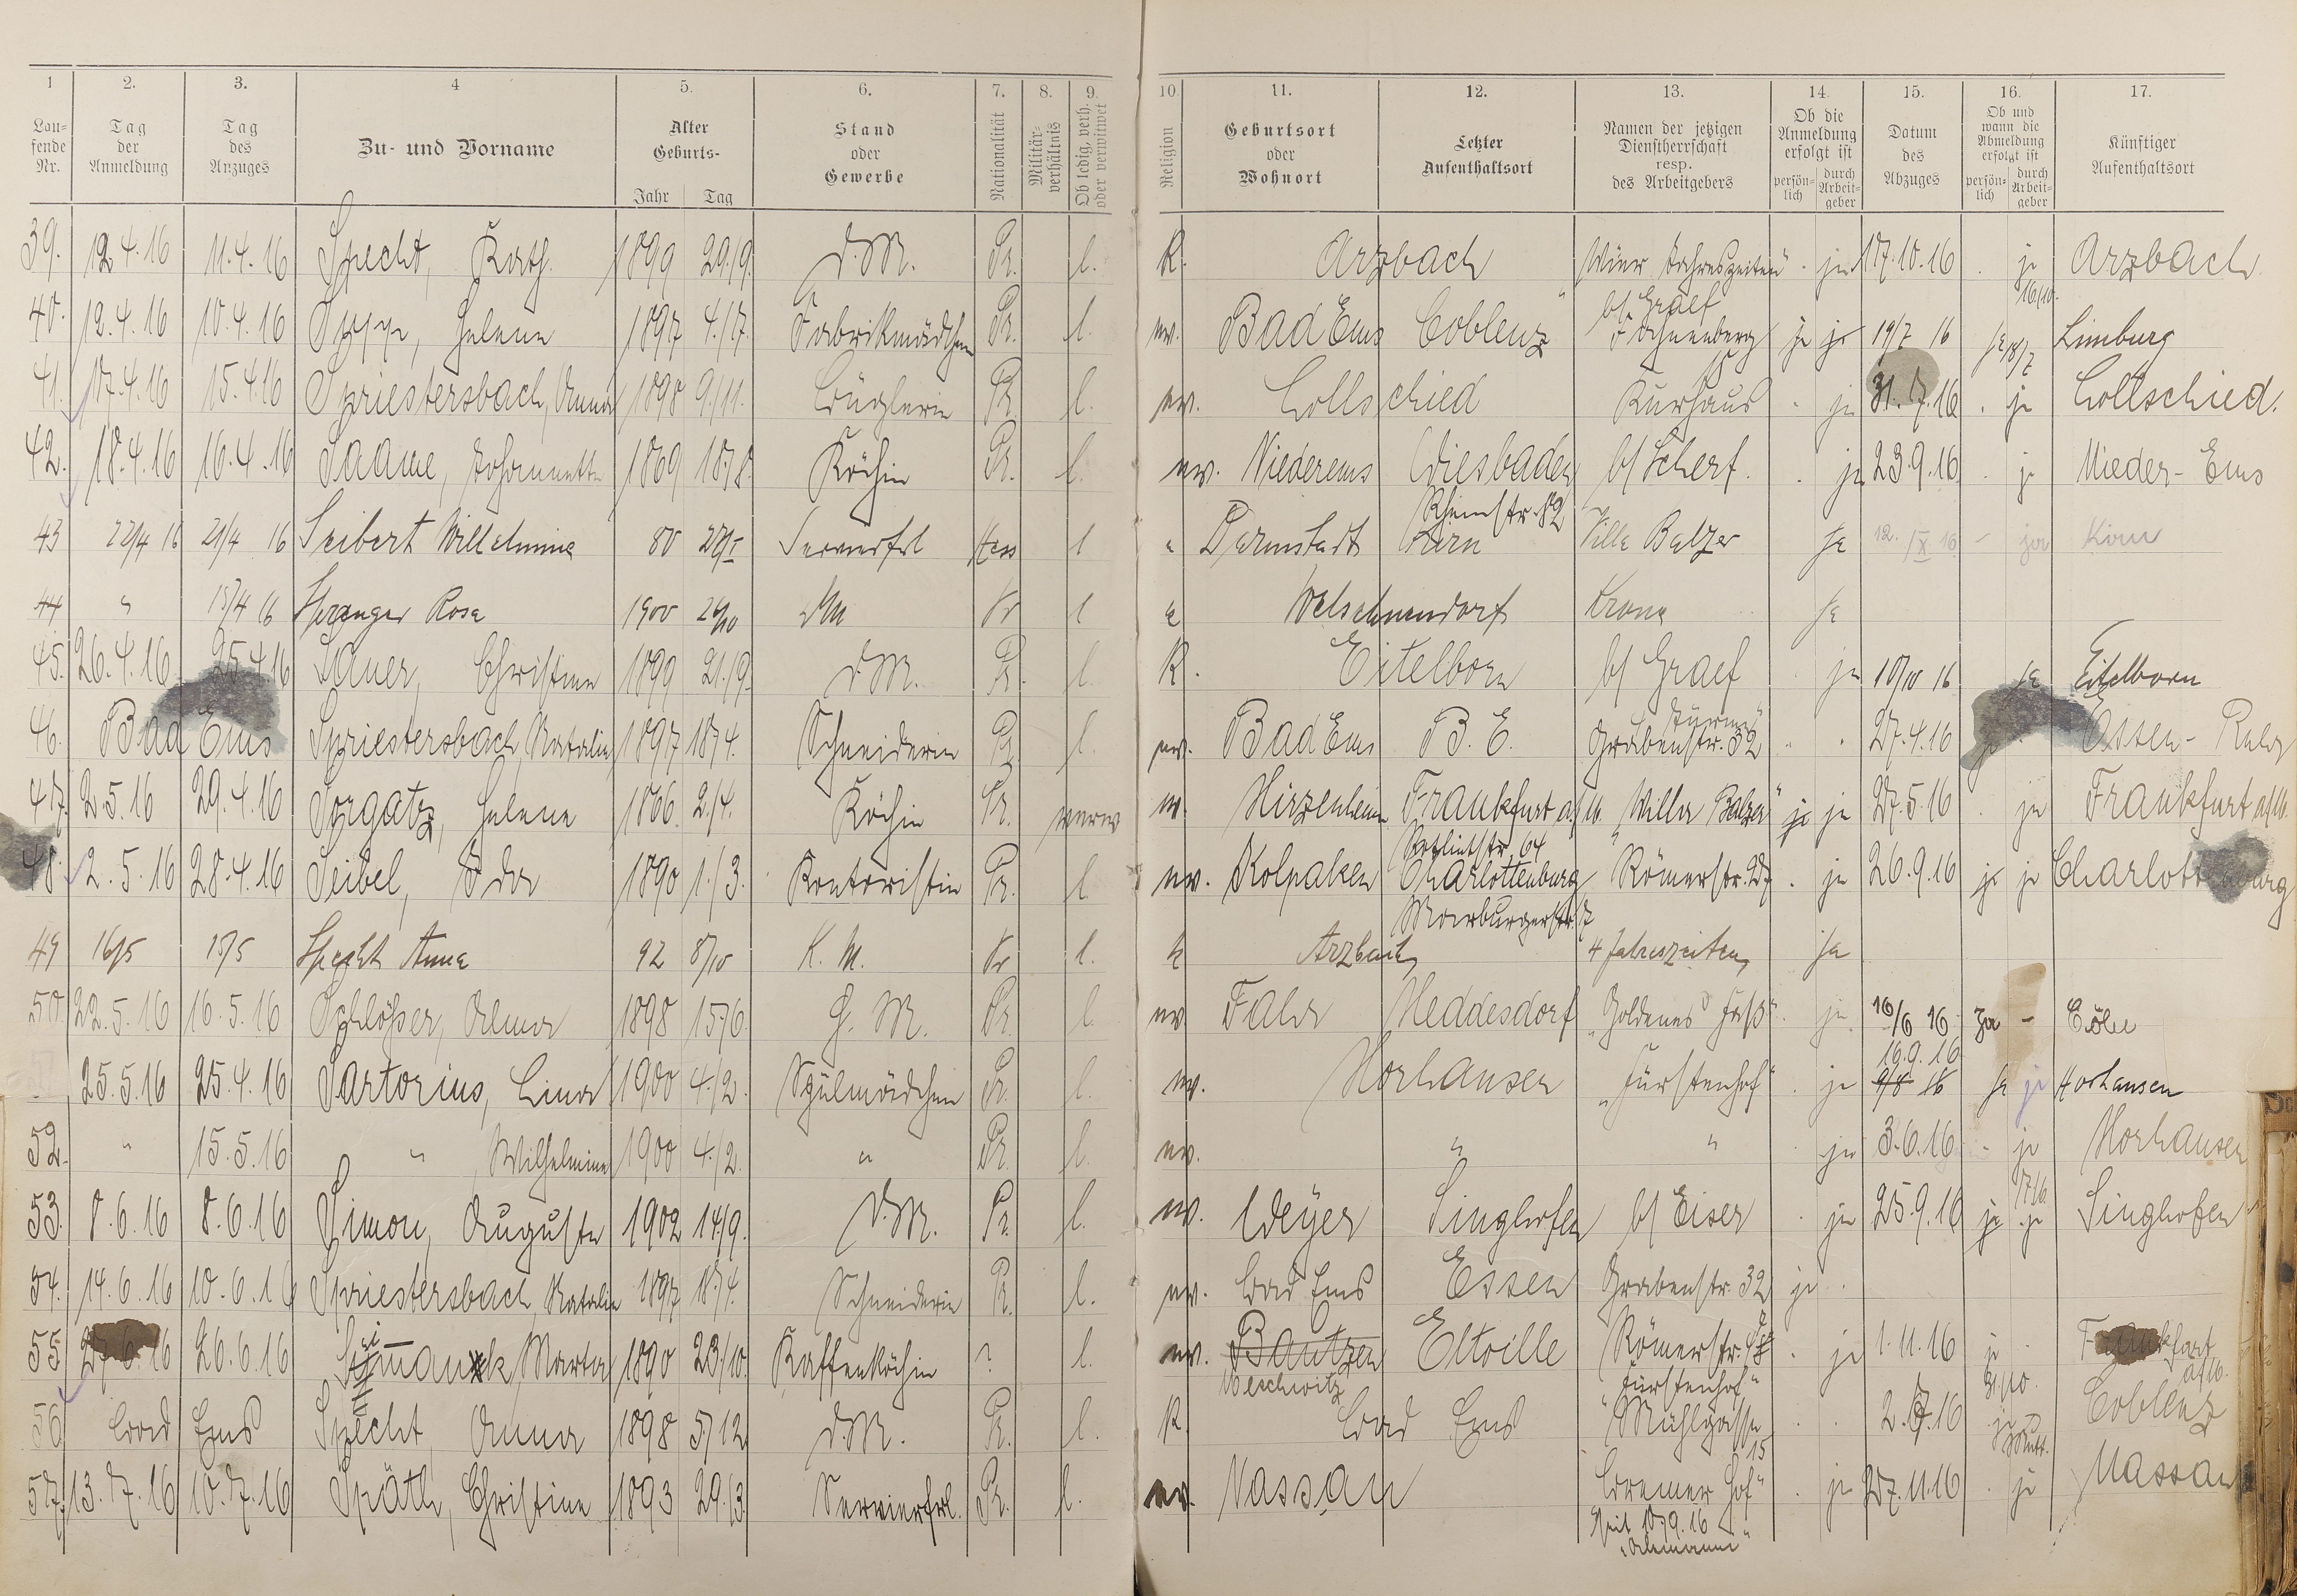 1 2. 3. 4 5. 6. 7. 8. 9. 10. 11. 12. 13. 14. 15. 16. 17.
Lau-
fende
Nr.
Tag
der
Anmeldung
Tag
des
Anzuges
Zu- und Vorname
Alter
Geburts-
Jahr Tag
Stand
oder
Gewerbe
Nationalität
Militär-
verhältnis
Ob ledig, verh.
oder verwitwet
Religion
Geburtsort
oder
Wohnort
Letzter
Aufenthaltsort
Namen der jetzigen
Dienstherrschaft
resp.
des Arbeitgebers
Ob die
Anmeldung
erfolgt ist
persön-
lich
durch
Arbeit-
geber
Datum
des
Abzuges
Ob und
wann die
Abmeldung
erfolgt ist
persön-
lich
durch
Arbeit-
geber
Künftiger
Aufenthaltsort
39. 12.4.16 11.4.16 Specht, Kath. 1899 29./9. D.M. Pr. l. K. Arzbach Jahreszeiten" ja 17.10.16 ja Arzbach
16/10.
40. 12.4.16 10.4.16 Helene 1897 4./7. Fabrikmädchen Pr. l. ev. Bad Ems Coblenz b/ Graef ja ja 19/7 16 ja 18/7 Limburg
41. 17.4.16 15.4.16 Spriestersbach, Anna 1898 9./11. Büglerin Pr. l. ev. Lollschied Kurhaus ja 31.7.16 ja Lollschied.
42. 18.4.16 16.4.16 Saame, Johannette 1869 18./8. Köchin Pr. l. ev. Niederems Wiesbaden b/ Scherf. ja 23.9.16 ja Nieder-Ems
Rheinstr. 82
43 22/4 16 21/4 16 Seibert Wilhelmine 80 Servierfrl Hess l Darmstadt Kirn Villa Balzer ja 12./IX.16 - ja Kirn
44 " 15/4 16 Spranger Rosa 1900 26/10 DM Pr l Welschneudorf Krone ja
45. 26.4.16 25.4.16 Sauer, Christine 1899 21./9. D.M. Pr. l. K. Eitelborn b/ Graef ja 18/10 16 ja Eitelborn
46. Bad Ems Spriestersbach, Natalie 1897 18./4. Schneiderin Pr. l. ev. Bad Ems B.E. Grabenstr. 32 27.4.16 Essen-Ruhr
47. 2.5.16 29.4.16 Sorgatz, Helene 1866 2./4. Köchin Pr. verw ev. Hirzenhain Frankfurt a/M. "Villa Balzer" ja ja 27.5.16 ja Frankfurt a/M.
48. 2.5.16 28.4.16 Seibel, Ida 1890 1./3. Kontoristin Pr. l ev. Kolpaken Charlottenburg Römerstr. 27 ja 26.9.16 ja ja Charlottenburg
49 16/5 15/5 Specht Anna 92 8/10 K.M. Pr l. k Arzbach 4 Jahreszeiten ja
50. 22.5.16 16.5.16 Schlößer, Alma 1898 15./6. H.M. Pr. l ev. Fahr Heddesdorf "Goldenes Faß" ja 16/6 16 ja - Cöln
16.9.16
25.5.16 25.4.16 Sartorius, Lina 1900 4./2. Spülmädchen Pr. l. ev. Horhausen "Fürstenhof" ja 9/8 16 ja ja Horhausen
52. " 15.5.16 " , Wilhelmine 1900 4./2. " Pr. l. ev. " " ja 3.6.16 - ja Horhausen
53. 8.6.16 8.6.16 Simon, Auguste 1902 14./9. D.M. Pr. l. ev. Weyer Singhofen b/ Eiser ja 25.9.16 ja ja Singhofen
54. 14.6.16 10.6.16 Spriestersbach, Natalie 1897 18./4. Schneiderin Pr. l. ev. Bad Ems Essen Grabenstr. 32 ja
55. 27.6.16 26.6.16 Marta 1890 23./10. Kaffeeköchin ? l. ev. Bautzen Eltville Römerstr. ja 1.11.16 ja Frankfurt
a/M.
Meschwitz "Fürstenhof" 31/10.
56. Bad Ems Specht, Anna 1898 5./12 D.M. Pr. l. K. Bad Ems Mühlgasse 15 Coblenz
57. 13.7.16 10.7.16 Späth, Christine 1893 29./3. Servierfrl. Pr. l. ev. Nassau "Bremer Hof" ja 27.11.16 ja Nassau
Seit 10.9.16